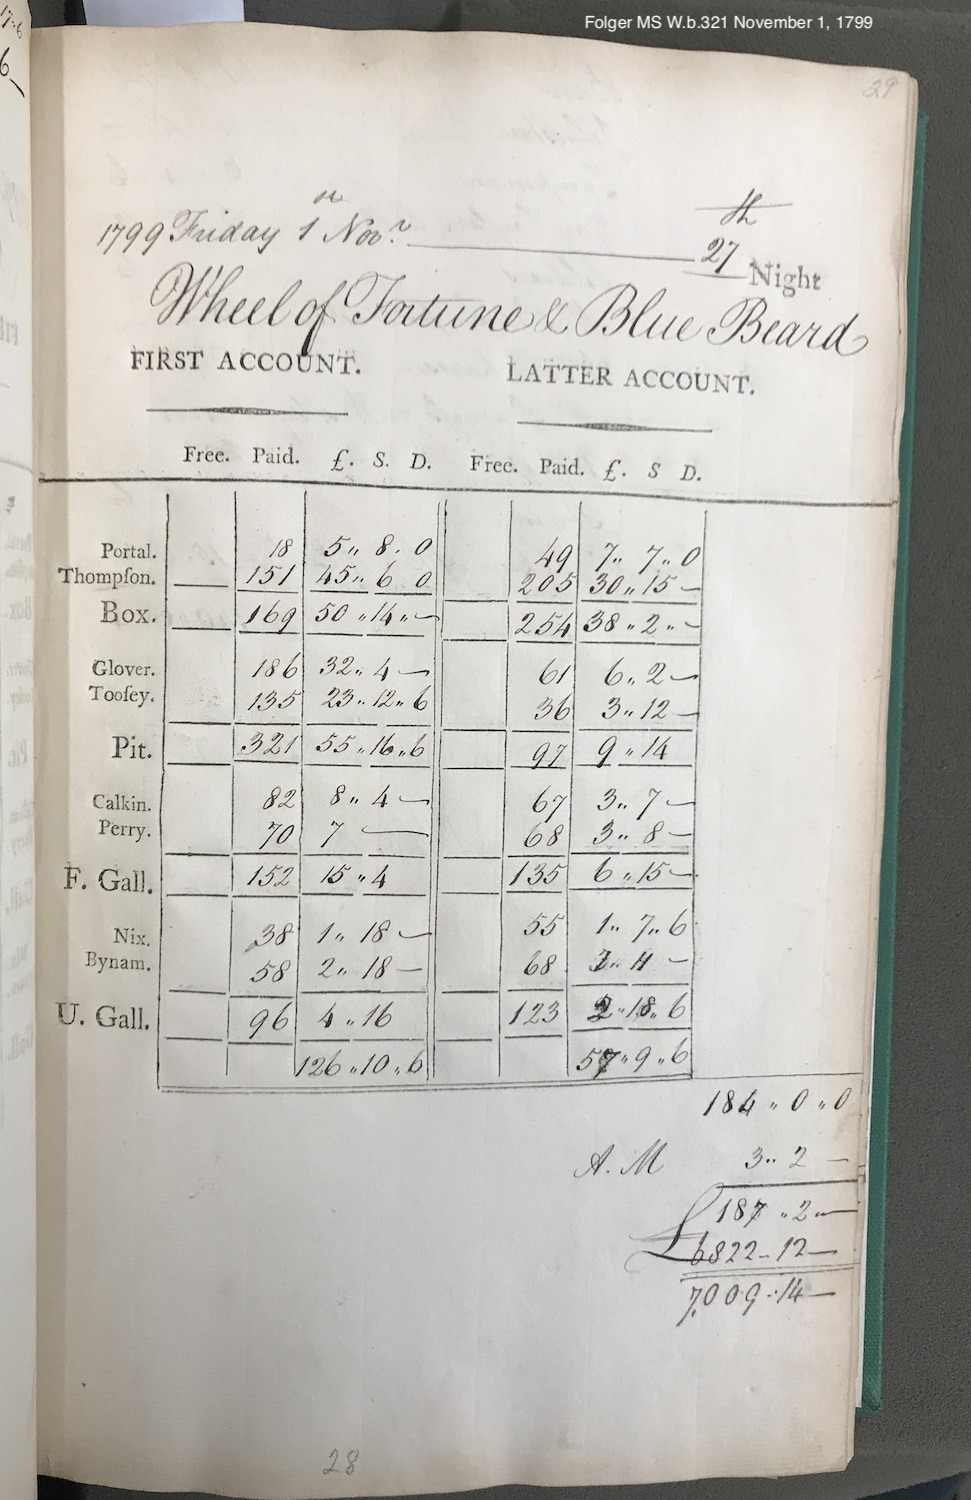 Folger MS W.b.321 November 1, 1799
29
1799 Friday 1 Novr. 27th Night
Wheel of Fortune & Blue Beard
FIRST ACCOUNT. LATTER ACCOUNT.
Free. Paid. £. S. D. Free. Paid. £. S D.
Portal. 18 5 " 8 . 0 49 7 " 7 " 0
Thompſon. 151 45 " 6 0 205 30 " 15 —
Box. 169 50 " 14 " — 254 38 " 2 " —
Glover. 186 32 " 4 — 61 6 " 2 —
Tooſey. 135 23 " 12 " 6 36 3 " 12 —
Pit. 321 55 " 16 " 6 97 9 " 14
Calkin. 82 8 " 4 — 67 3 " 7 —
Perry. 70 7 — 68 3 " 8 —
F. Gall. 152 15 " 4 135 6 " 15 —
Nix. 38 1 " 18 — 55 1 " 7 " 6
Bynam. 58 2 " 18 — 68 " 11 —
U. Gall. 96 4 " 16 123 2 " 18 " 6
126 " 10 " 6 57 " 9 " 6
184 " 0 " 0
A. M 3 " 2 —
£ 187 " 2 " —
6822 - 12 —
7,009 - 14 —
28